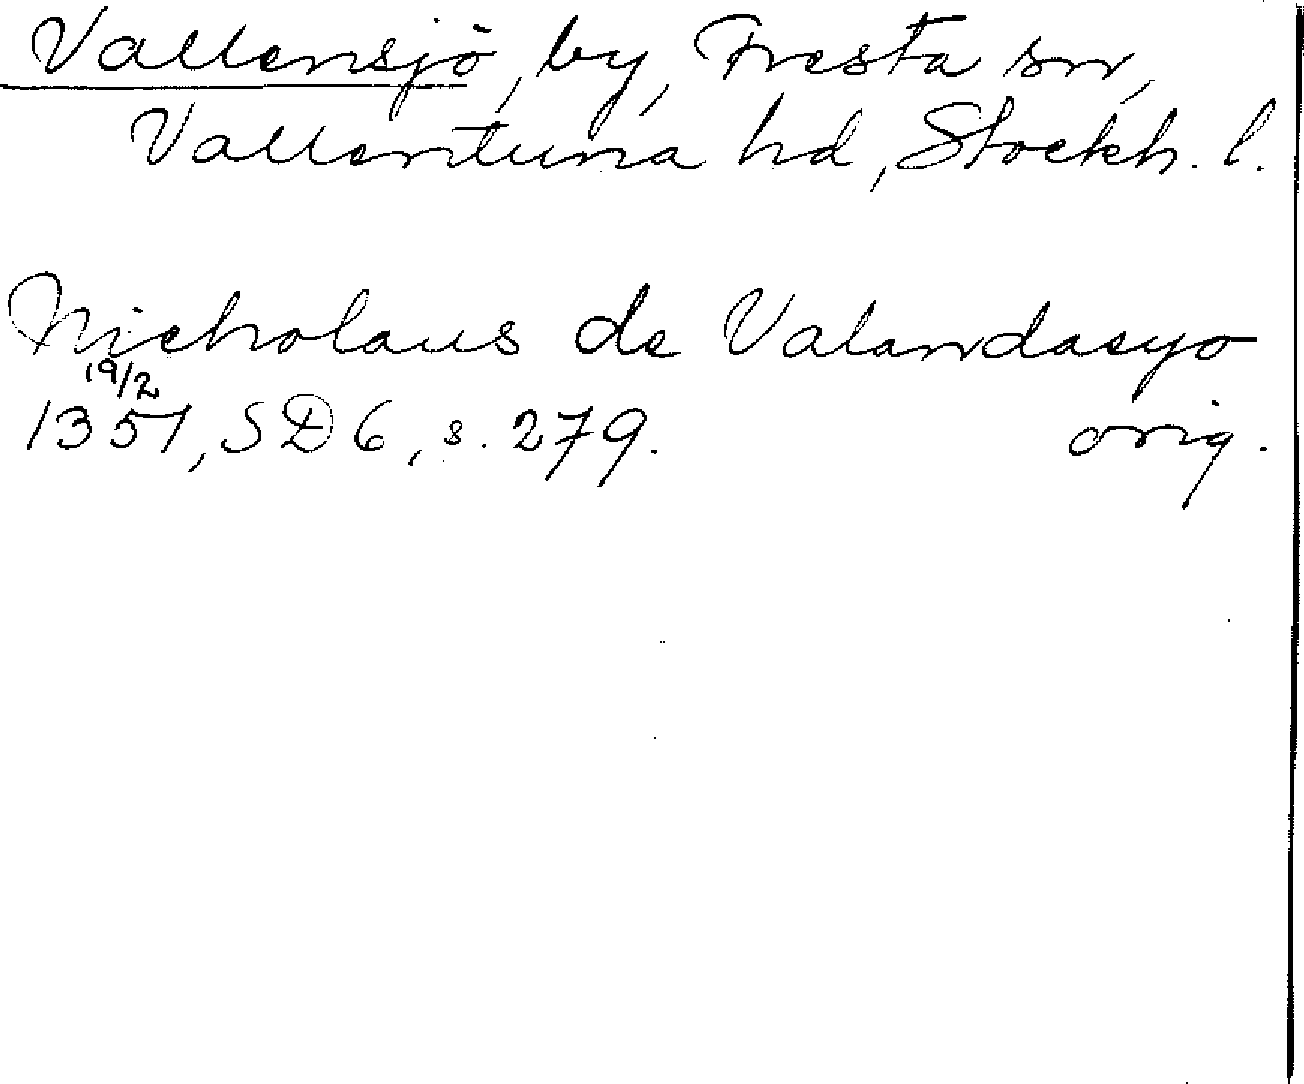 Vallensjö, by, Fresta sn,
Vallentuna hd, Stockh. l.
Nicholaus de Valandasyo
19/2
1351, SD 6, s. 279. orig.